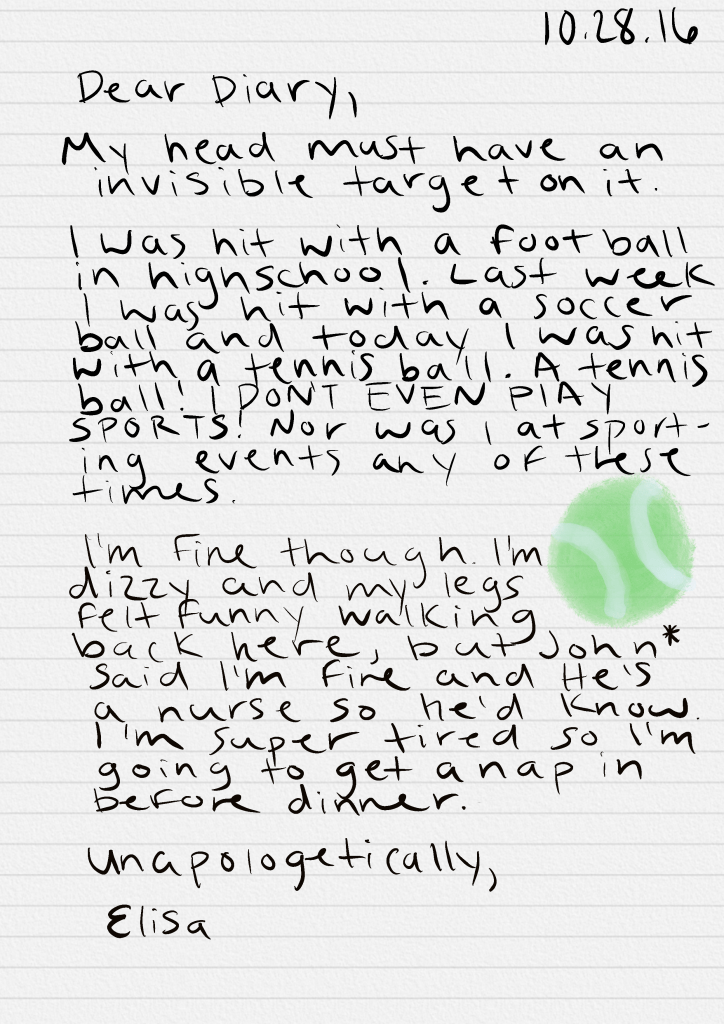 10.28.16
Dear Diary,
My head must have an
invisible target on it.
I was hit with a football
in highschool. Last week
I was hit with a soccer
ball and today I was hit
with a tennis ball. A tennis
ball! I DON'T EVEN PLAY
SPORTS! Nor was I at sport-
ing events any of these
times.
I'm fine though. I'm
dizzy and my legs
felt funny walking
back here, but John*
said I'm fine and He's
a nurse so he'd know.
I'm super tired so I'm
going to get a nap in
before dinner.
unapologetically,
Elisa